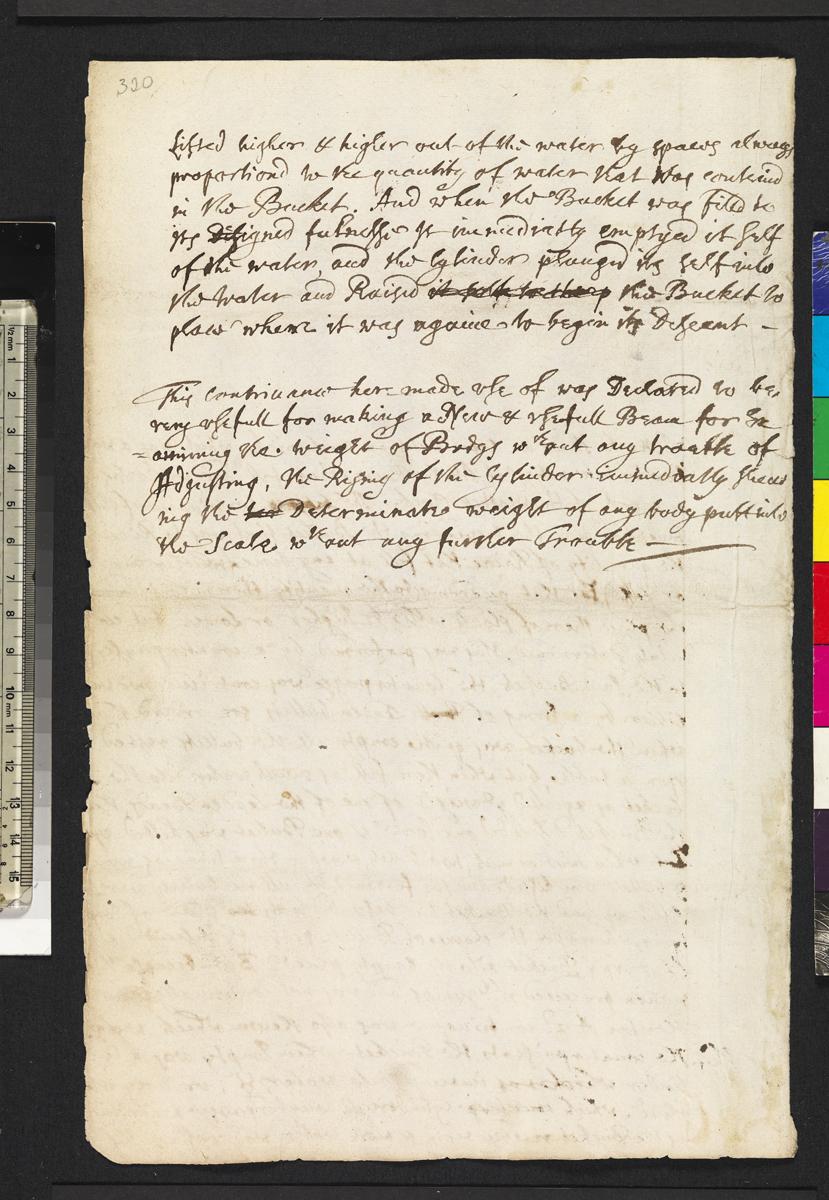 320
Lifted higher & higher out of the water by spaces always
proportiond to the quantity of water that was containd
in the Bucket. And when the Bucket was filed to
its Designed fulnesse it immediatly emptyed it self
of the water, and the Cylinder plunged its self into
the water and Raised the Bucket to
place where it was againe to begin its Descent –
This contrivance here made vse of was Declared to be
very vsefull for making a New & vsefull Beam for Ex
=amining the weight of Bodys wthout any trouble of
Adjusting, the Rising of the Cylinder immediatly shew
ing the Determinate weight of any body putt into
the Scale wthout any further Trouble —